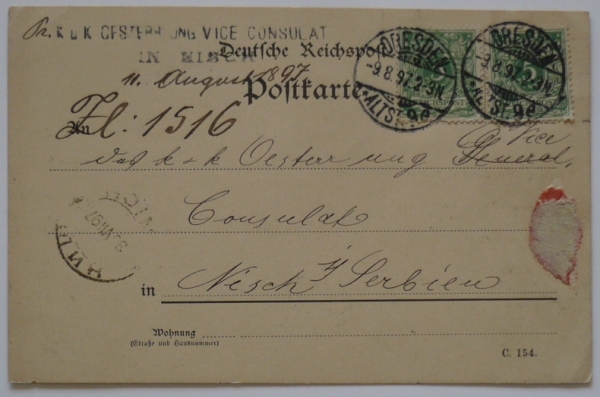 Pr. K u K OESTERR-UNG VICE CONSULAT
IN NISCH
Deutsche Reichspost
11. August 1897.
Postkarte
DRESDEN
-9.8.97. 2-3N.
*ALTST. 9d
DRESDEN
-9.8.97. 2-3N.
*ALTST. 9d
An
Zl: 1516
Vice
das k & k Oesterr ung General
Consulat
НИШ
in Nisch i/ Serbien
Wohnung
(Straße und Hausnummer)
C. 154.